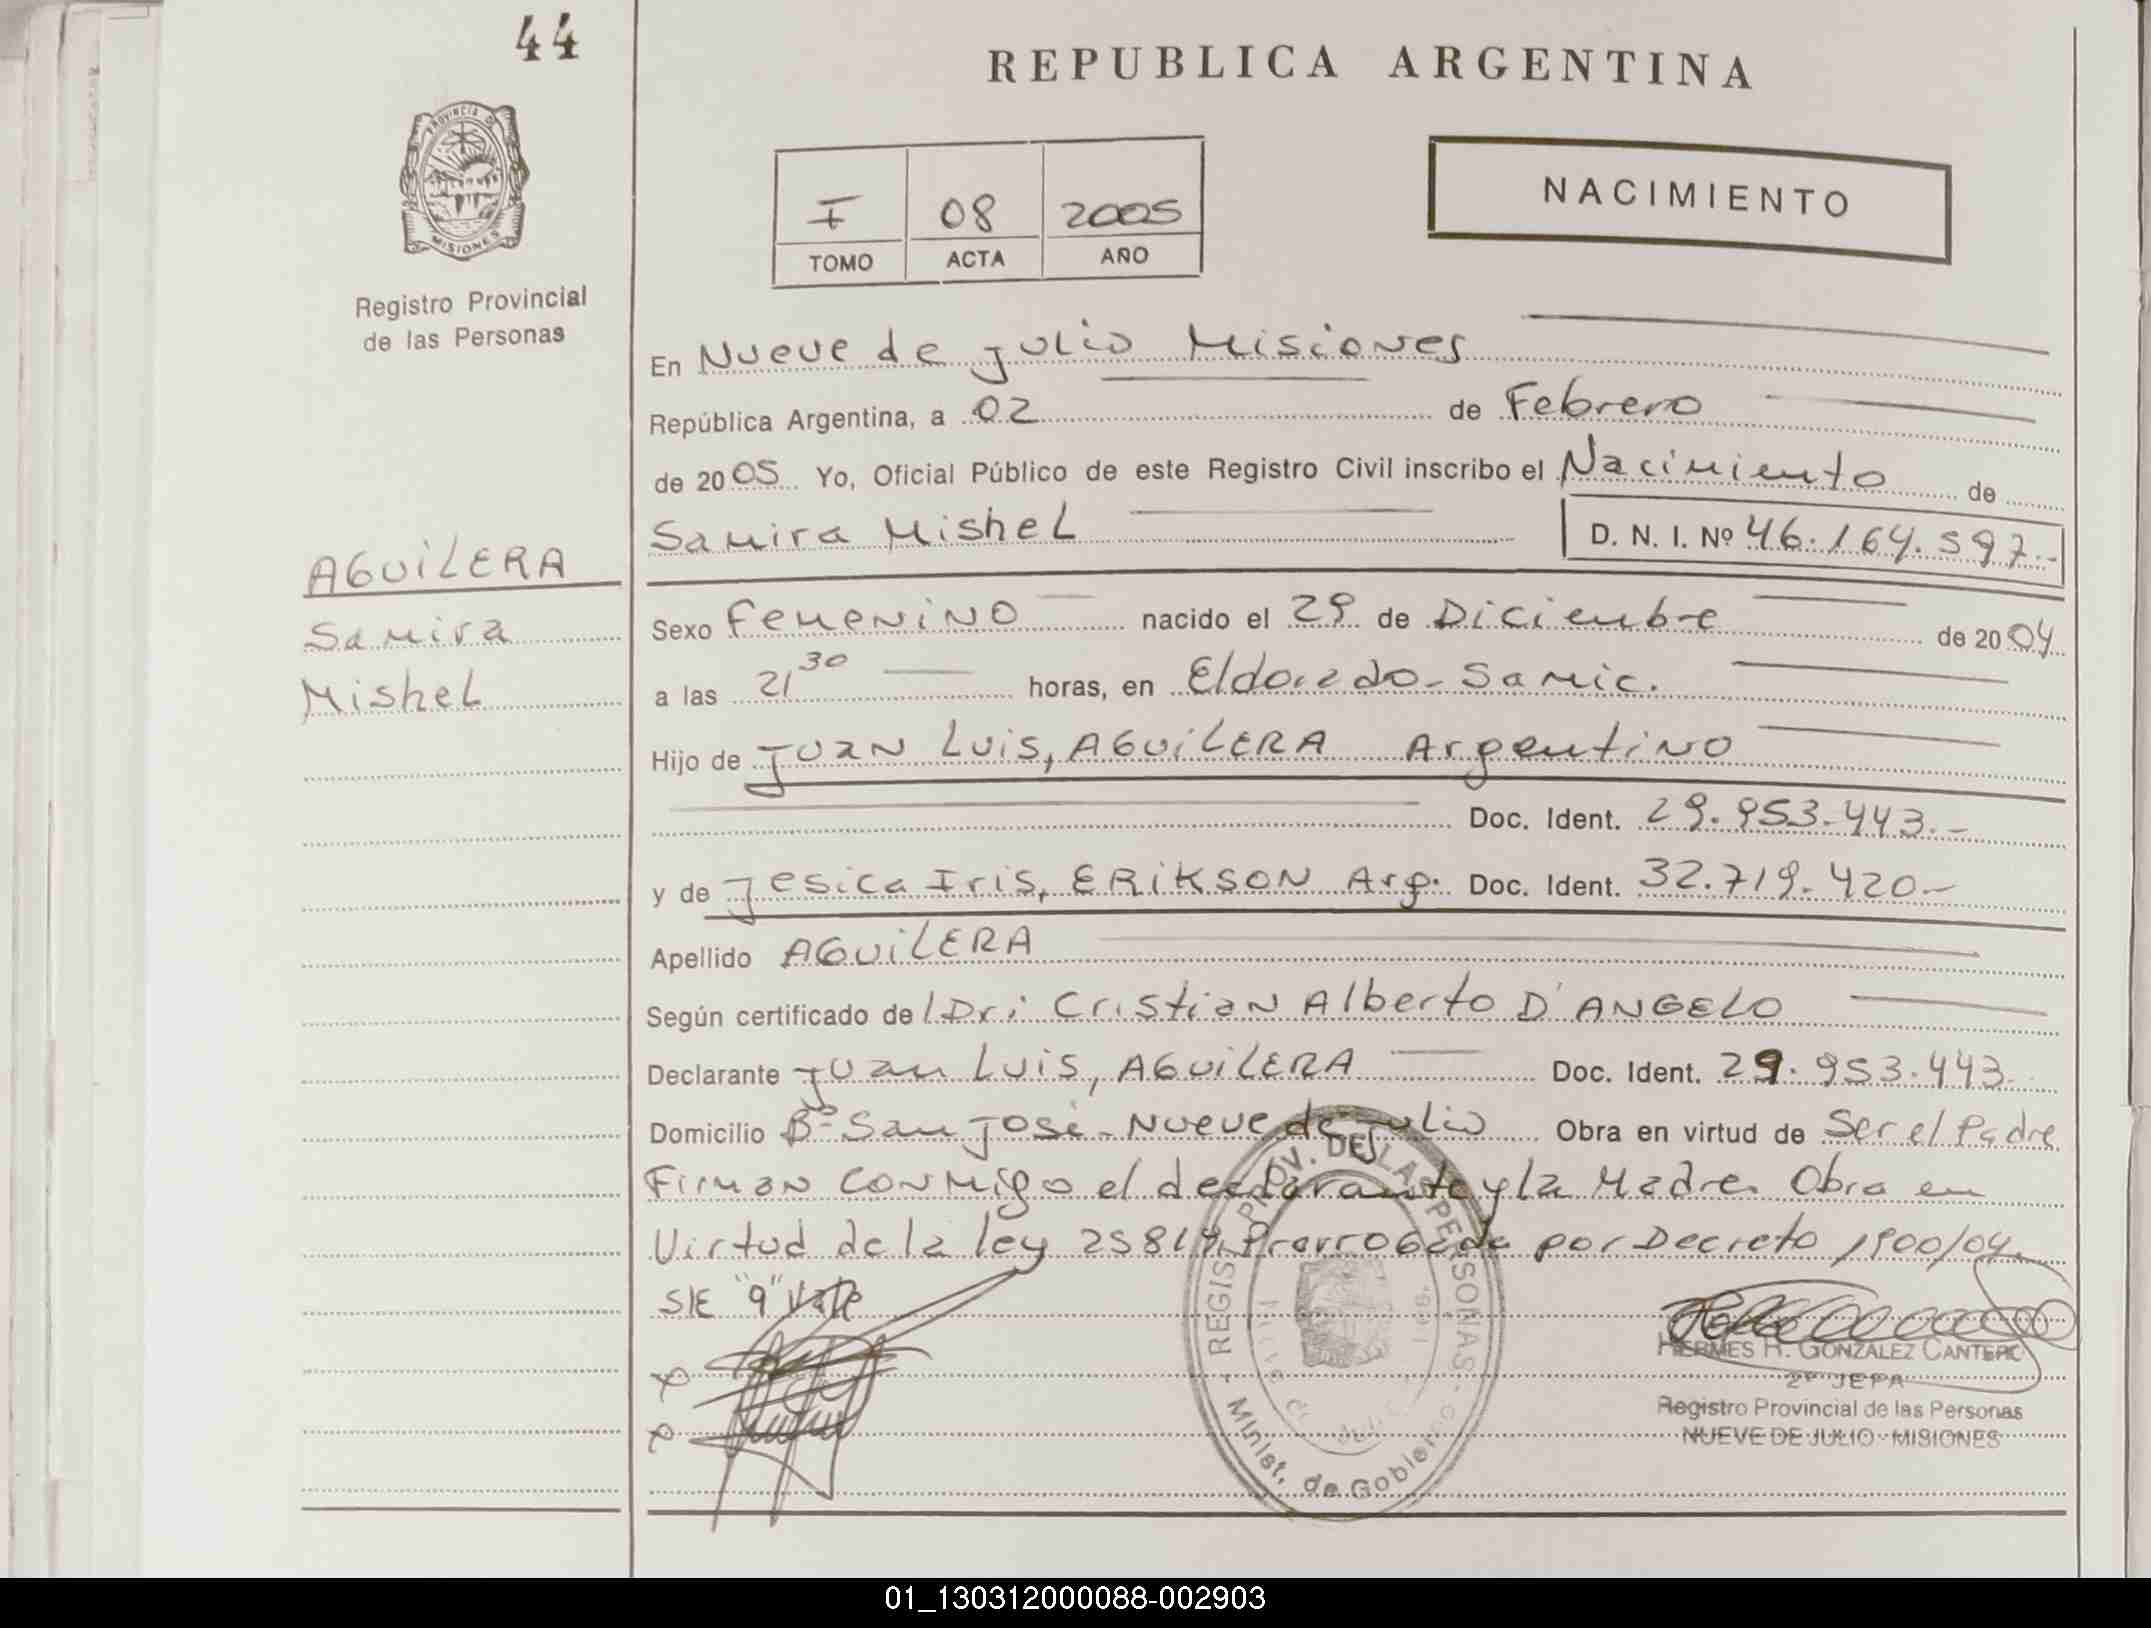 44
REPUBLICA ARGENTINA
PROVINCIA DE
MISIONES
Registro Provincial
de las Personas
I 08 2005
TOMO ACTA AÑO
NACIMIENTO
En Nueve de julio Misiones
República Argentina, a 02 de Febrero
de 2005 Yo, Oficial Público de este Registro Civil inscribo el Nacimiento de
Samira Mishel D. N. I. Nº 46.164.597.-
AGUiLERA
Samira
Mishel
Sexo Femenino nacido el 29 de Diciembre de 2004
a las 21 30 horas, en Eldorado - Samic.
Hijo de Juan Luis, AGUiLERA Argentino
Doc. Ident. 29.953.443.-
y de Jesica Iris, ERiKSON Arg. Doc. Ident. 32.719.420.-
Apellido AGUiLERA
Según certificado de l Dr: Cristian Alberto D'ANGELO
Declarante Juan Luis, AGUiLERA Doc. Ident. 29.953.443
Domicilio Bº San José - Nueve de Julio Obra en virtud de Ser el Padre
Firman conmigo el declarante y la Madre. Obra en
Virtud de la ley 25819, Prorrogada por Decreto 1900/04.
S/E "9" Vale
REGIST. PROV. DE LAS PERSONAS - Minist. de Gobierno -
HERMES R. GONZALEZ CANTERO
2º JEFA
Registro Provincial de las Personas
NUEVE DE JULIO - MISIONES
01_130312000088-002903